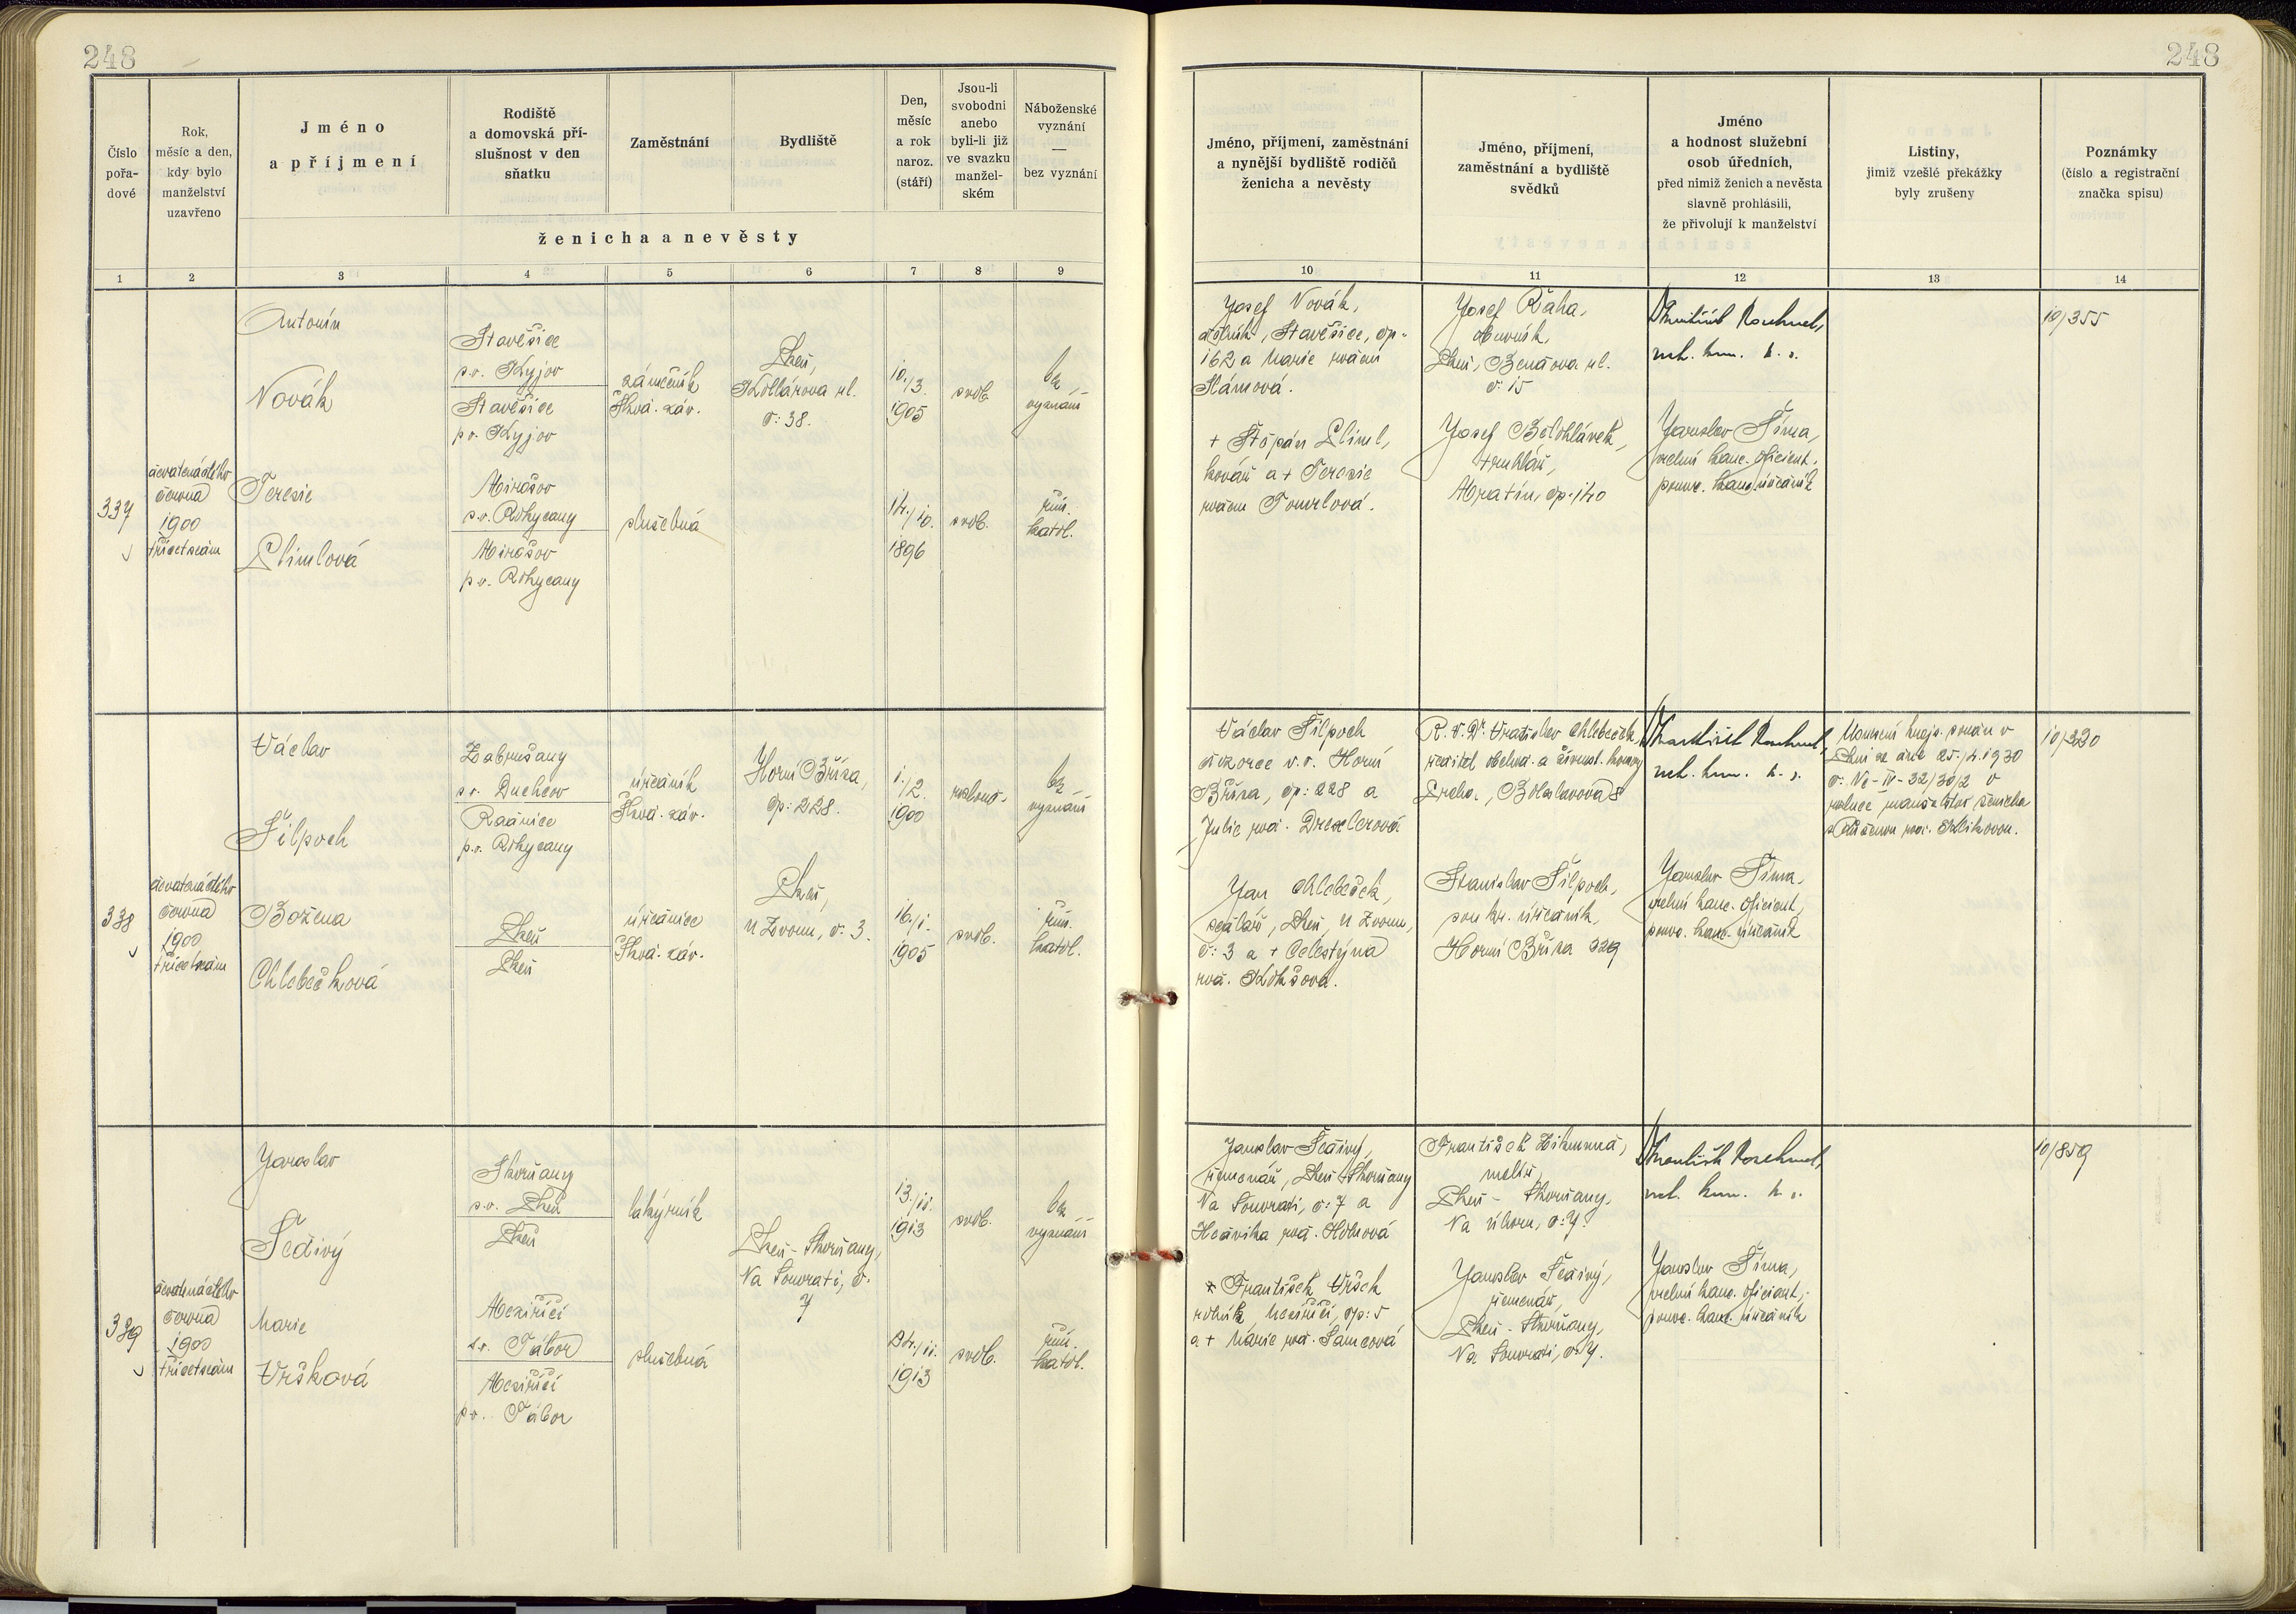 248
248
Číslo pořa-dové
Rok, měsíc a den, kdy bylo manželství uzavřeno
Jméno a příjmení
Rodiště a domovská pří-slušnost v den sňatku
Zaměstnání
Bydliště
Den, měsíc a rok naroz. (stáří)
Jsou-li svobodni anebo byli-li již ve svazku manžel-ském
Náboženské vyznání — bez vyznání
ženicha a nevěsty
1 2 3 4 5 6 7 8 9
Jméno, příjmení, zaměstnání a nynější bydliště rodičů ženicha a nevěsty
Jméno, příjmení, zaměstnání a bydliště svědků
Jméno a hodnost služební osob úředních, před nimiž ženich a nevěsta slavně prohlásili, že přivolují k manželství
Listiny, jimiž vzešlé překážky byly zrušeny
Poznámky (číslo a registrační značka spisu)
10 11 12 13 14
337
devatenáctého
června
1900
třicetsedm
Antonín
Novák
Terezie
Stavěšice
p.o. Kyjov
Stavěšice
p.o. Kyjov
Mirošov
p.o. Rokycany
Mirošov
p.o. Rokycany
zámečník
Škod. záv.
služebná
Plzeň,
Kollárova ul.
č: 38.
10./3.
1905
14./10.
1896
svob.
svob.
bez
vyznání
řím.
katol.
Josef Novák,
dělník, Stavěšice, čp.
162 a Marie rozená
+ Štěpán
kovář a + Terezie
rozená
Josef Řaha,
Plzeň,
č: 15
Josef Bělohlávek,
truhlář,
čp. 140
Jaroslav Šíma,
vrchní kanc. oficient,
pověř. kanc. úředník
10/355
338
devatenáctého
června
1900
třicetsedm
Václav
Šilpoch
Božena
Chlebečková
Zabrušany
p.o. Duchcov
p.o. Rokycany
Plzeň
Plzeň
úředník
Škod. záv.
úřednice
Škod. záv.
Horní Bříza,
čp: 228.
Plzeň,
U Zvonu, č. 3.
1./2.
1900
16./1.
1905
svob.
bez
vyznání
řím.
katol.
Václav Šilpoch
dozorce v.v. Horní
Bříza, čp: 228 a
Julie roz. Drexlerová
Jan Chlebeček,
Plzeň, U Zvonu,
č: 3 a + Celestýna
roz.
Vratislav Chlebeček,
ředitel obchod. a živnost. komory
Praha, Boleslavova 8
Stanislav Šilpoch,
úředník,
Horní Bříza 229
Jaroslav Šíma,
vrchní kanc. oficient,
pověř. kanc. úředník
Usnesení krajs. soudu v
Plzni ze dne 25./4. 1930
10/220
339
devatenáctého
června
1900
třicetsedm
Jaroslav
Šedivý
Marie
Vršková
Skvrňany
p.o. Plzeň
Plzeň
Meziříčí
p.o. Tábor
Meziříčí
p.o. Tábor
lakýrník
služebná
Plzeň - Skvrňany,
Na Souvrati, č.
7
13./11.
1913
24./11.
1913
svob.
svob.
bez
vyznání
řím.
katol.
Jaroslav Šedivý,
řemenář, Plzeň-Skvrňany
Na Souvrati, č: 7 a
Hedvika roz.
František Vršek
rolník, Meziříčí, čp: 5
a + Marie roz. Samcová
František
Plzeň - Skvrňany,
Jaroslav Šedivý,
řemenář,
Plzeň - Skvrňany,
Na Souvrati, č. 7.
Jaroslav Šíma,
vrchní kanc. oficient,
pověř. kanc. úředník
10/859